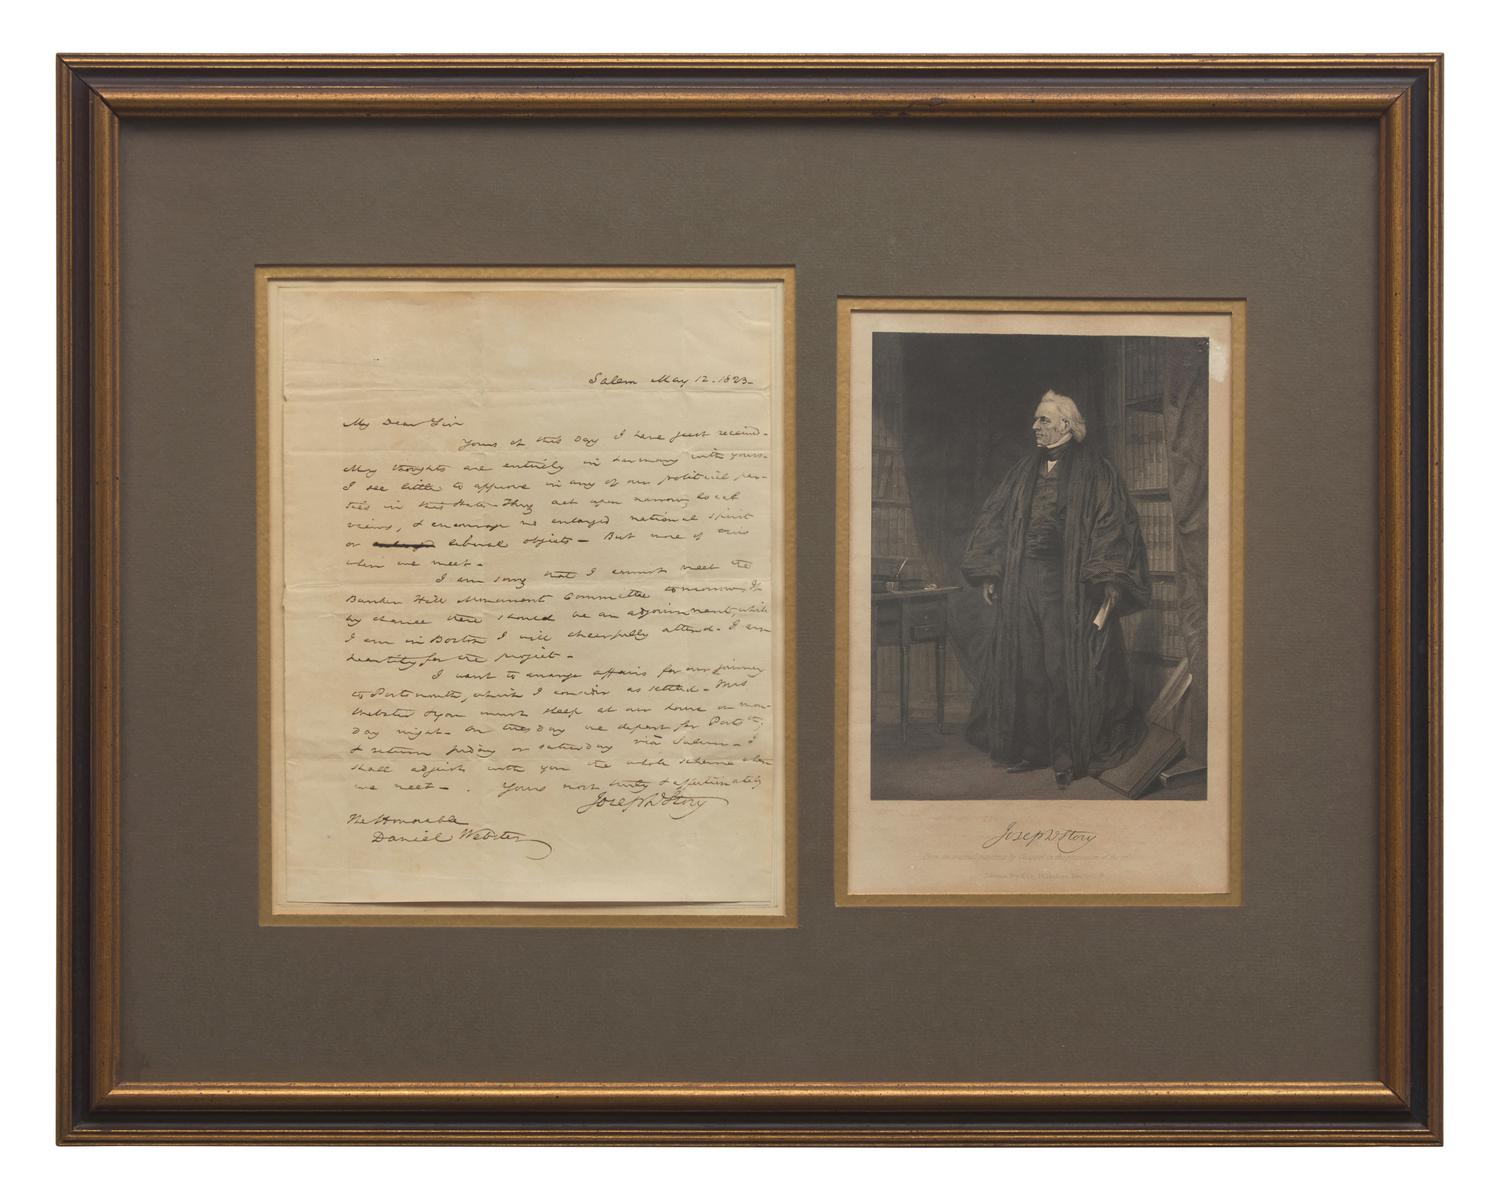 Salem May 12. 1823-
My Dear Sir
Yours of this Day I have just received.
My thoughts are entirely in harmony with yours.
I see little to approve in any of our political par-
ties in this State. They act upon narrow local
views, & encourage no enlarged national spirit
or liberal objects - But more of this
when we meet -
I am sorry that I cannot meet the
Bunker Hill Monument Committee tomorrow. If
by chance there should be an adjournment, while
I am in Boston I will cheerfully attend. I am
heartily for the project -
I want to arrange affairs for our journey
to Portsmouth, which I consider as settled - Mrs
Webster & you must sleep at our house on Mon-
day night - On Tuesday we depart for Portsth;
& return friday or saturday via Salem - I
shall adjust with you the whole scheme when
we meet - . Yours most truly & affectionately
Joseph Story
The Honourable
Daniel Webster
Joseph Story
From an original painting by Chappel in the possession of the